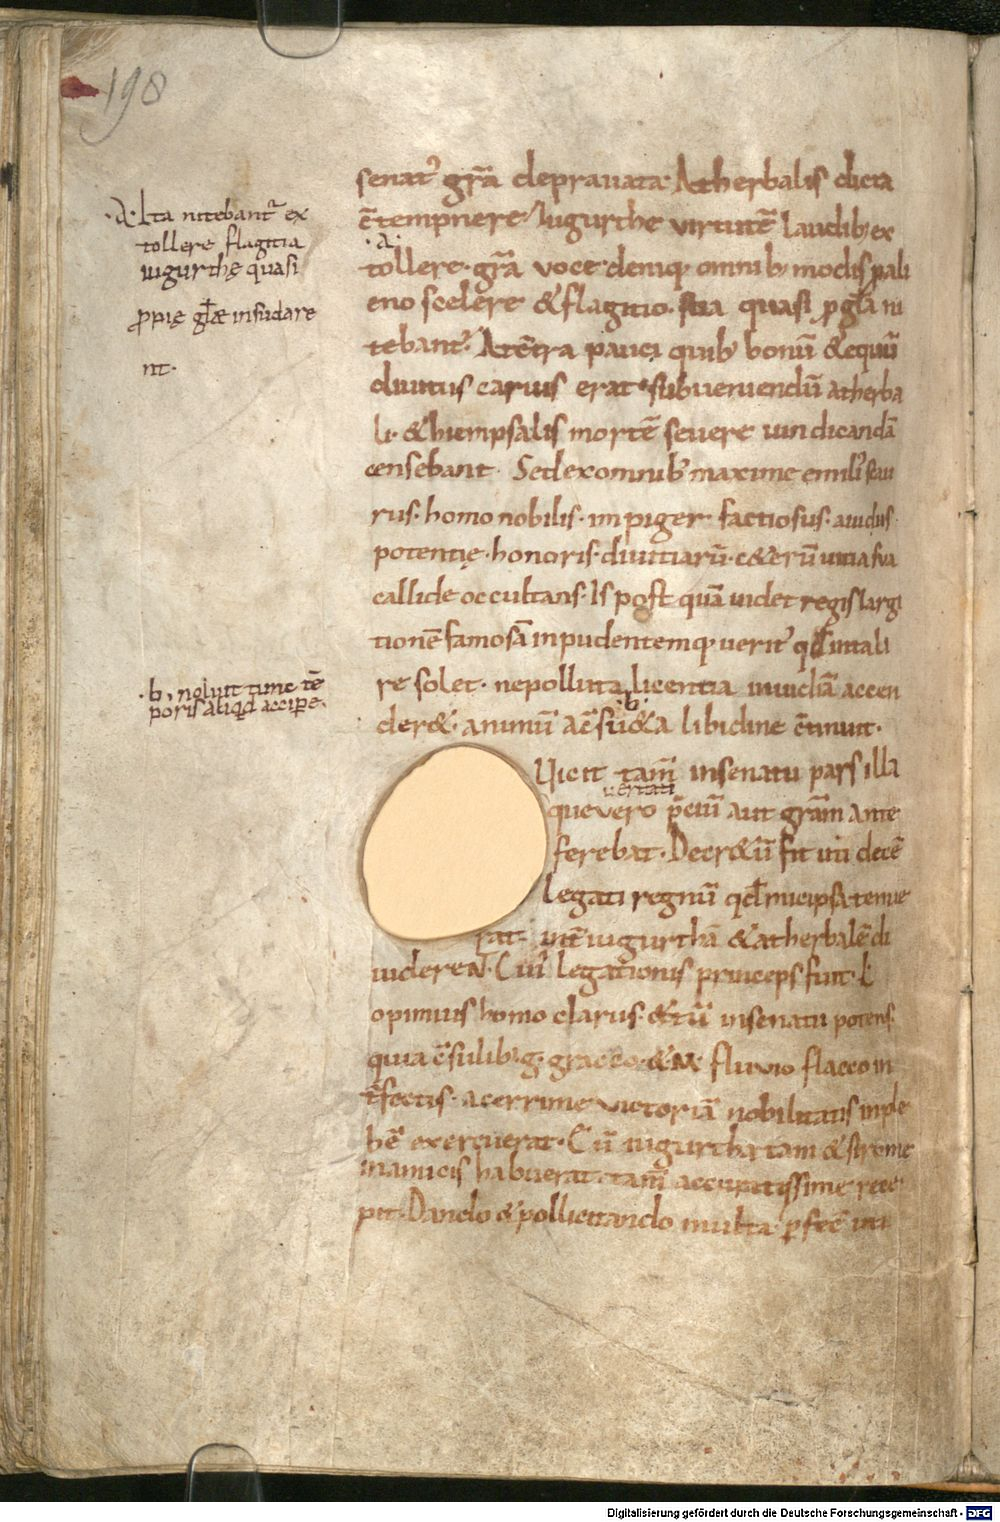 198
senat᷒ gr̄a deprauata. Atherbalis dicta
c̄tempnere. Iugurthe uirtutē laudib; ex
.A.
tollere. gr̄a uoce. deniq; omnib; modis p ali
eno scelere & flagitio. sua quasi ꝓ gl̄a ni
tebant᷒. At c̄tra pauci quib; bonū & equū
diuitiis carius erat. subueniendū atherba
li. & hiempsalis mortē seuere uindicandā
censebant. Sed ex omnib; maxime emili᷒ scau
rus. homo nobilis. impiger. factiosus. auidus
potentię. honoris. diuitiarū. c&erū uitia sua
callide occultans. Is post quā uidet regis largi
tionē famosā inpudentemq; uerit᷒ qd̄ in tali
re solet. ne polluta licentia inuidiā accen
.b.
der&. animū a c̄su&a libidine c̄tinuit.
Uicit tam̄ in senatu pars illa
ueritati
que uero p̄ciū aut gr̄am ante
ferebat. Decr&ū fit uti decē
legati regnū qd̄ micipsa tenue
rat. int̄ iugurthā & atherbalē di
uiderent. Cui᷒ legationis princeps fuit. L
opimius homo clarus. & tū in senatu potens.
quia c̄sul ib; g. gracco. & M. fluuio flacco in
t̄fectis. acerrime uictoriā nobilitatis in ple
bē exercuerat. Cū iugurtha tam & si rome
inamicis habuerat. tam̄ accuratissime rece
pit. Dando & pollicitando multa ꝑfec̄ uti
.A. Ita nitebant᷒ ex
tollere flagitia
iugurthę quasi
ꝓpię gl̄æ insudare
nt.
.b. noluit tunc tē
poris aliqd̄ accipe.
Digitalisierung gefördert durch die Deutsche Forschungsgemeinschaft - DFG